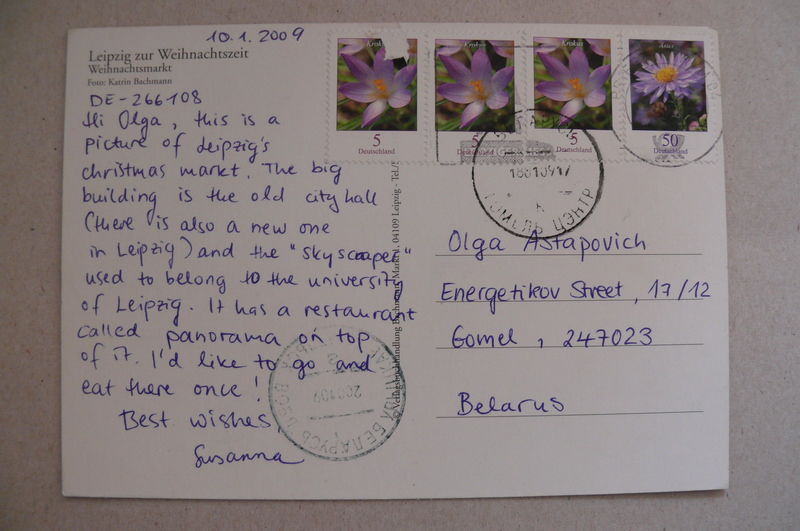 10.1.2009
Leipzig zur Weihnachtszeit
Weihnachtsmarkt
Foto: Katrin Bachmann
DE-266108
Hi Olga, this is a
picture of Leipzig's
christmas market. The big
building is the old city hall
(there is also a new one
in Leipzig) and the "skyscraper"
used to belong to the university
of Leipzig. It has a restaurant
called panorama on top
of it. I'd like to go and
eat there once!
Best wishes,
Susanna
Krokus
5
Deutschland
Krokus
5
Deutschland
Krokus
5
Deutschland
Aster
50
Deutschland
18010917
ГОМЕЛЬ ЦЭНТР
Olga Astapovich
Energetikov Street, 17/12
Gomel, 247023
Belarus
Markt 1, 04109 Leipzig - Tel.
БЕЛАРУСЬ